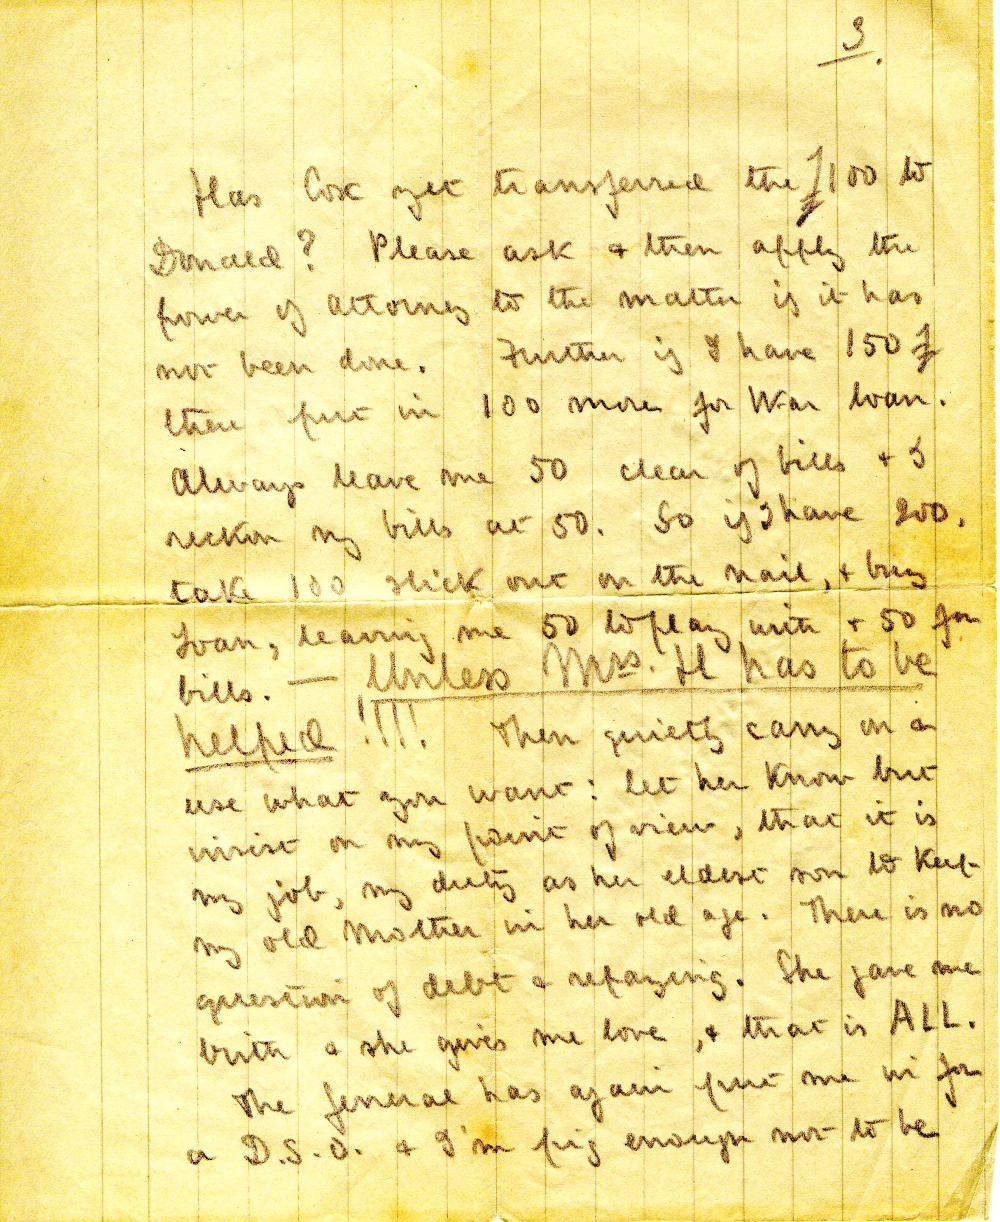 3.
Has Cox yet transferred the £100 to
Donald? Please ask & then apply the
power of attorney to the matter if it has
not been done. Further if I have 150 £
there put in 100 more for War loan.
Always leave me 50 clear of bills & I
reckon my bills at 50. So if I have 200,
take 100 slick out on the nail, & buy
Loan, leaving me 50 to play with & 50 for
bills. — Unless Mrs. H has to be
helped !!!! Then quietly carry on &
use what you want: let her know but
insist on my point of view, that it is
my job, my duty as her eldest son to keep
my old Mother in her old age. There is no
question of debt & repaying. She gave me
birth & she gives me love, & that is ALL.
The General has again put me in for
a D.S.O. & I'm pig enough not to be